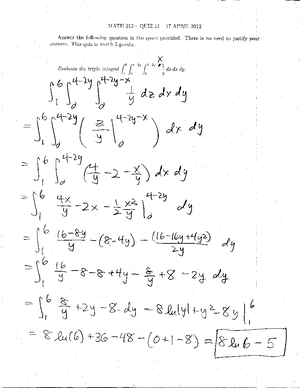 MATH 213 - QUIZ 11 17 APRIL 2012
Answer the following question in the space provided. There is no need to justify your
answer. This quiz is worth 5 points.
Evaluate the triple integral ∫ ∫ ∫ dz dx dy.
∫₁⁶ ∫₀^(4-2y) ∫₀^(4-2y-x) 1/y dz dx dy
= ∫₁⁶ ∫₀^(4-2y) ( z/y |₀^(4-2y-x) ) dx dy
= ∫₁⁶ ∫₀^(4-2y) ( 4/y - 2 - x/y ) dx dy
= ∫₁⁶ 4x/y - 2x - 1/2 x²/y |₀^(4-2y) dy
= ∫₁⁶ (16-8y)/y - (8-4y) - (16-16y+4y²)/2y dy
= ∫₁⁶ 16/y - 8 - 8 + 4y - 8/y + 8 - 2y dy
= ∫₁⁶ 8/y + 2y - 8 dy = 8 ln|y| + y² - 8y |₁⁶
= 8 ln(6) + 36 - 48 - (0+1-8) = 8 ln 6 - 5